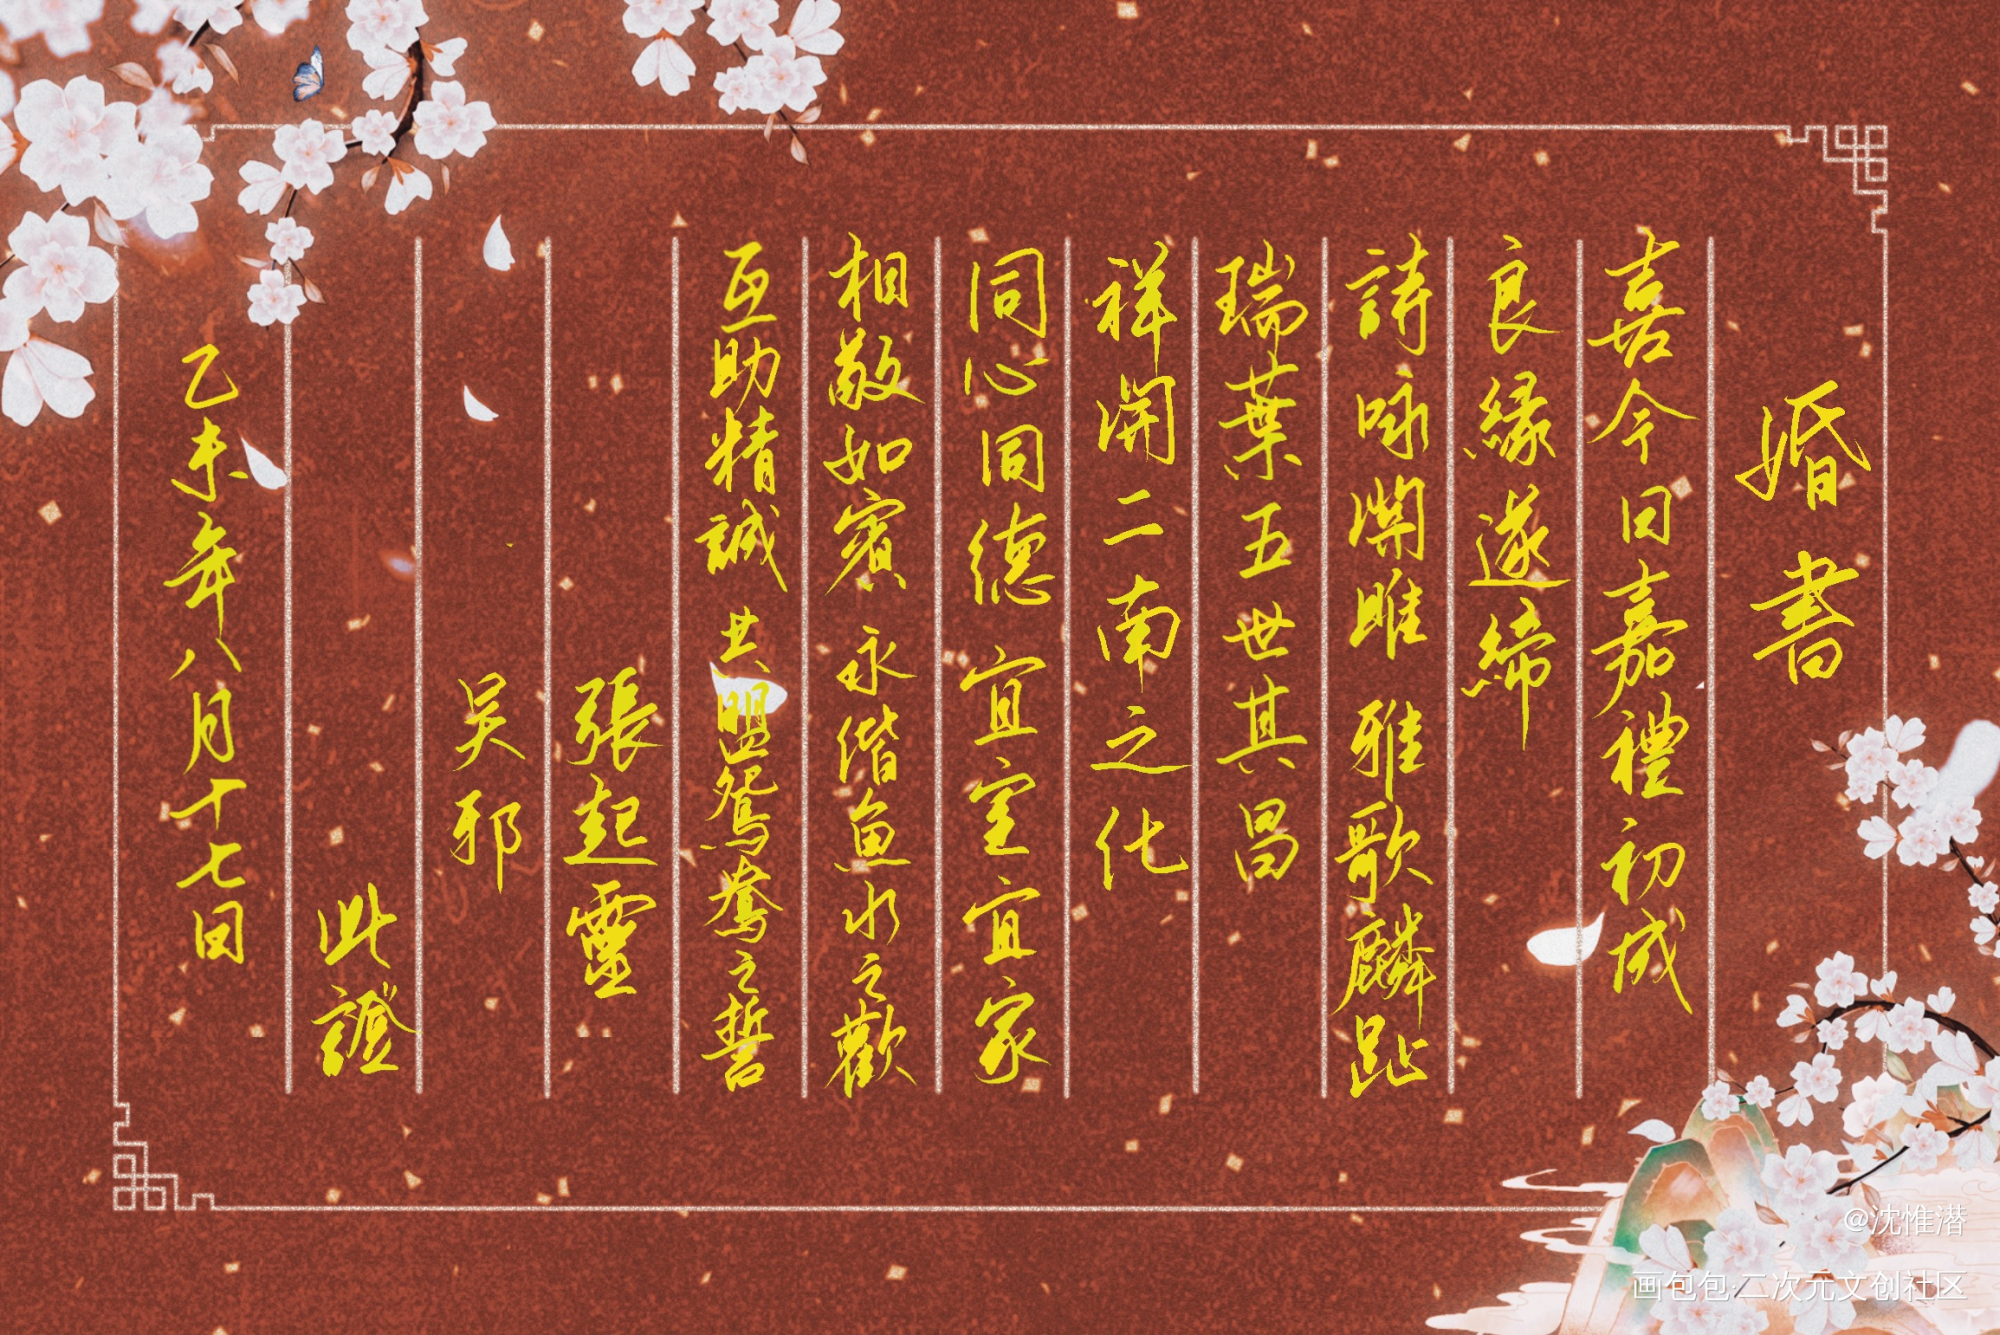 婚書
喜今日嘉禮初成
良緣遂締
詩咏關雎 雅歌麟趾
瑞葉五世其昌
祥開二南之化
同心同德 宜室宜家
相敬如賓 永偕魚水之歡
互助精誠 共盟鴛鴦之誓
張起靈
吴邪
此證
乙未年八月十七日
@沈惟潜
画包包·二次元文创社区